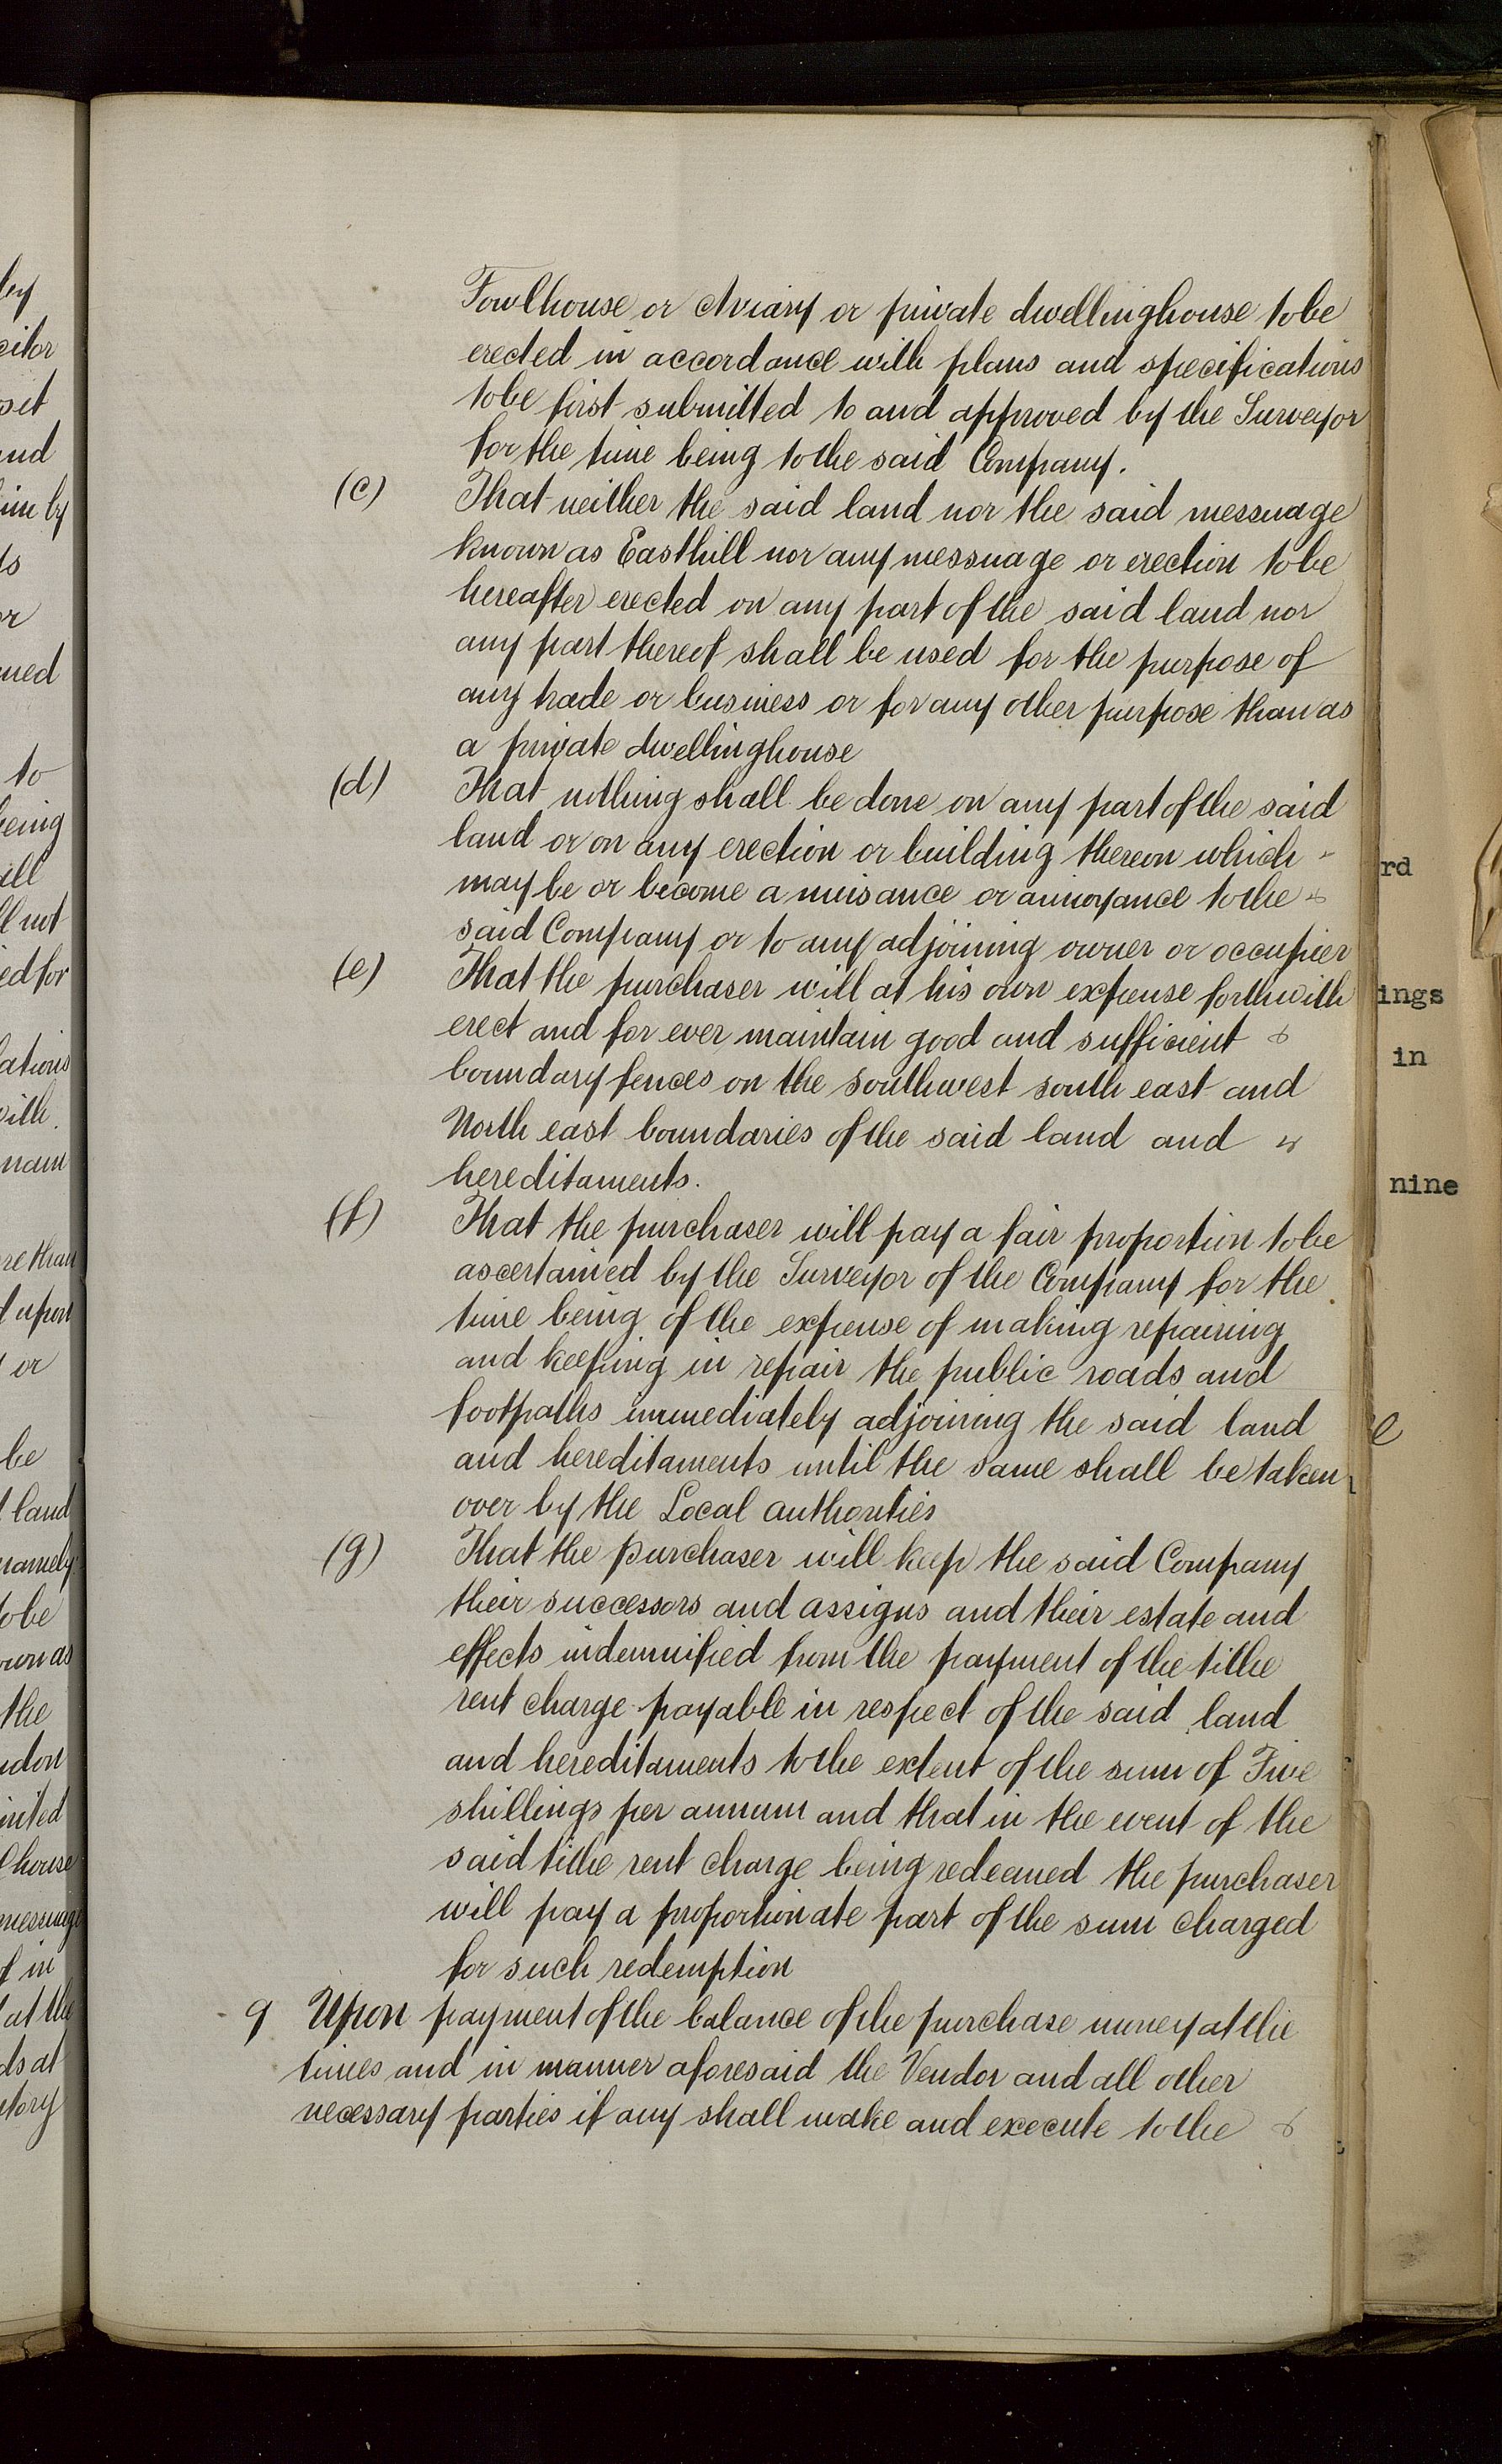 Fowlhouse or Aviary or private dwellinghouse to be
erected in accordance with plans and specifications
to be first submitted to and approved by the Surveyor
for the time being to the said Company.
(c) That neither the said land nor the said messuage
known as Easthill nor any messuage or erection to be
hereafter erected on any part of the said land nor
any part thereof shall be used for the purpose of
any trade or business or for any other purpose than as
a private dwellinghouse
(d) That nothing shall be done on any part of the said
land or on any erection or building thereon which
may be or become a nuisance or annoyance to the
said Company or to any adjoining owner or occupier
(e) That the purchaser will at his own expense forthwith
erect and for ever maintain good and sufficient
boundary fences on the southwest south east and
North east boundaries of the said land and
hereditaments.
(f) That the purchaser will pay a fair proportion to be
ascertained by the Surveyor of the Company for the
time being of the expense of making repairing
and keeping in repair the public roads and
footpaths immediately adjoining the said land
and hereditaments until the same shall be taken
over by the Local authorities
(g) That the purchaser will keep the said Company
their successors and assigns and their estate and
effects indemnified from the payment of the tithe
rent charge payable in respect of the said land
and hereditaments to the extent of the sum of Five
shillings per annum and that in the event of the
said tithe rent charge being redeemed the purchaser
will pay a proportionate part of the sum charged
for such redemption
9 Upon payment of the balance of the purchase money at the
times and in manner aforesaid the Vendor and all other
necessary parties if any shall make and execute to the
rd
ings
in
nine